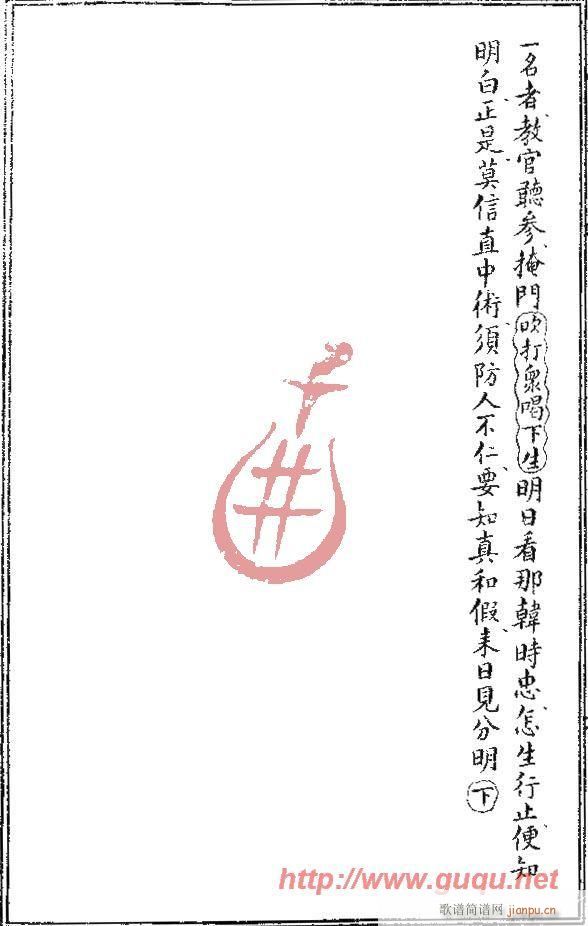 一名者教官聽參掩門吹打衆喝下生明日看那韓時忠怎生行止便知
明白正是莫信直中術須防人不仁要知真和假来日見分明下
http://www.guqu.net
歌谱简谱网 jianpu.cn